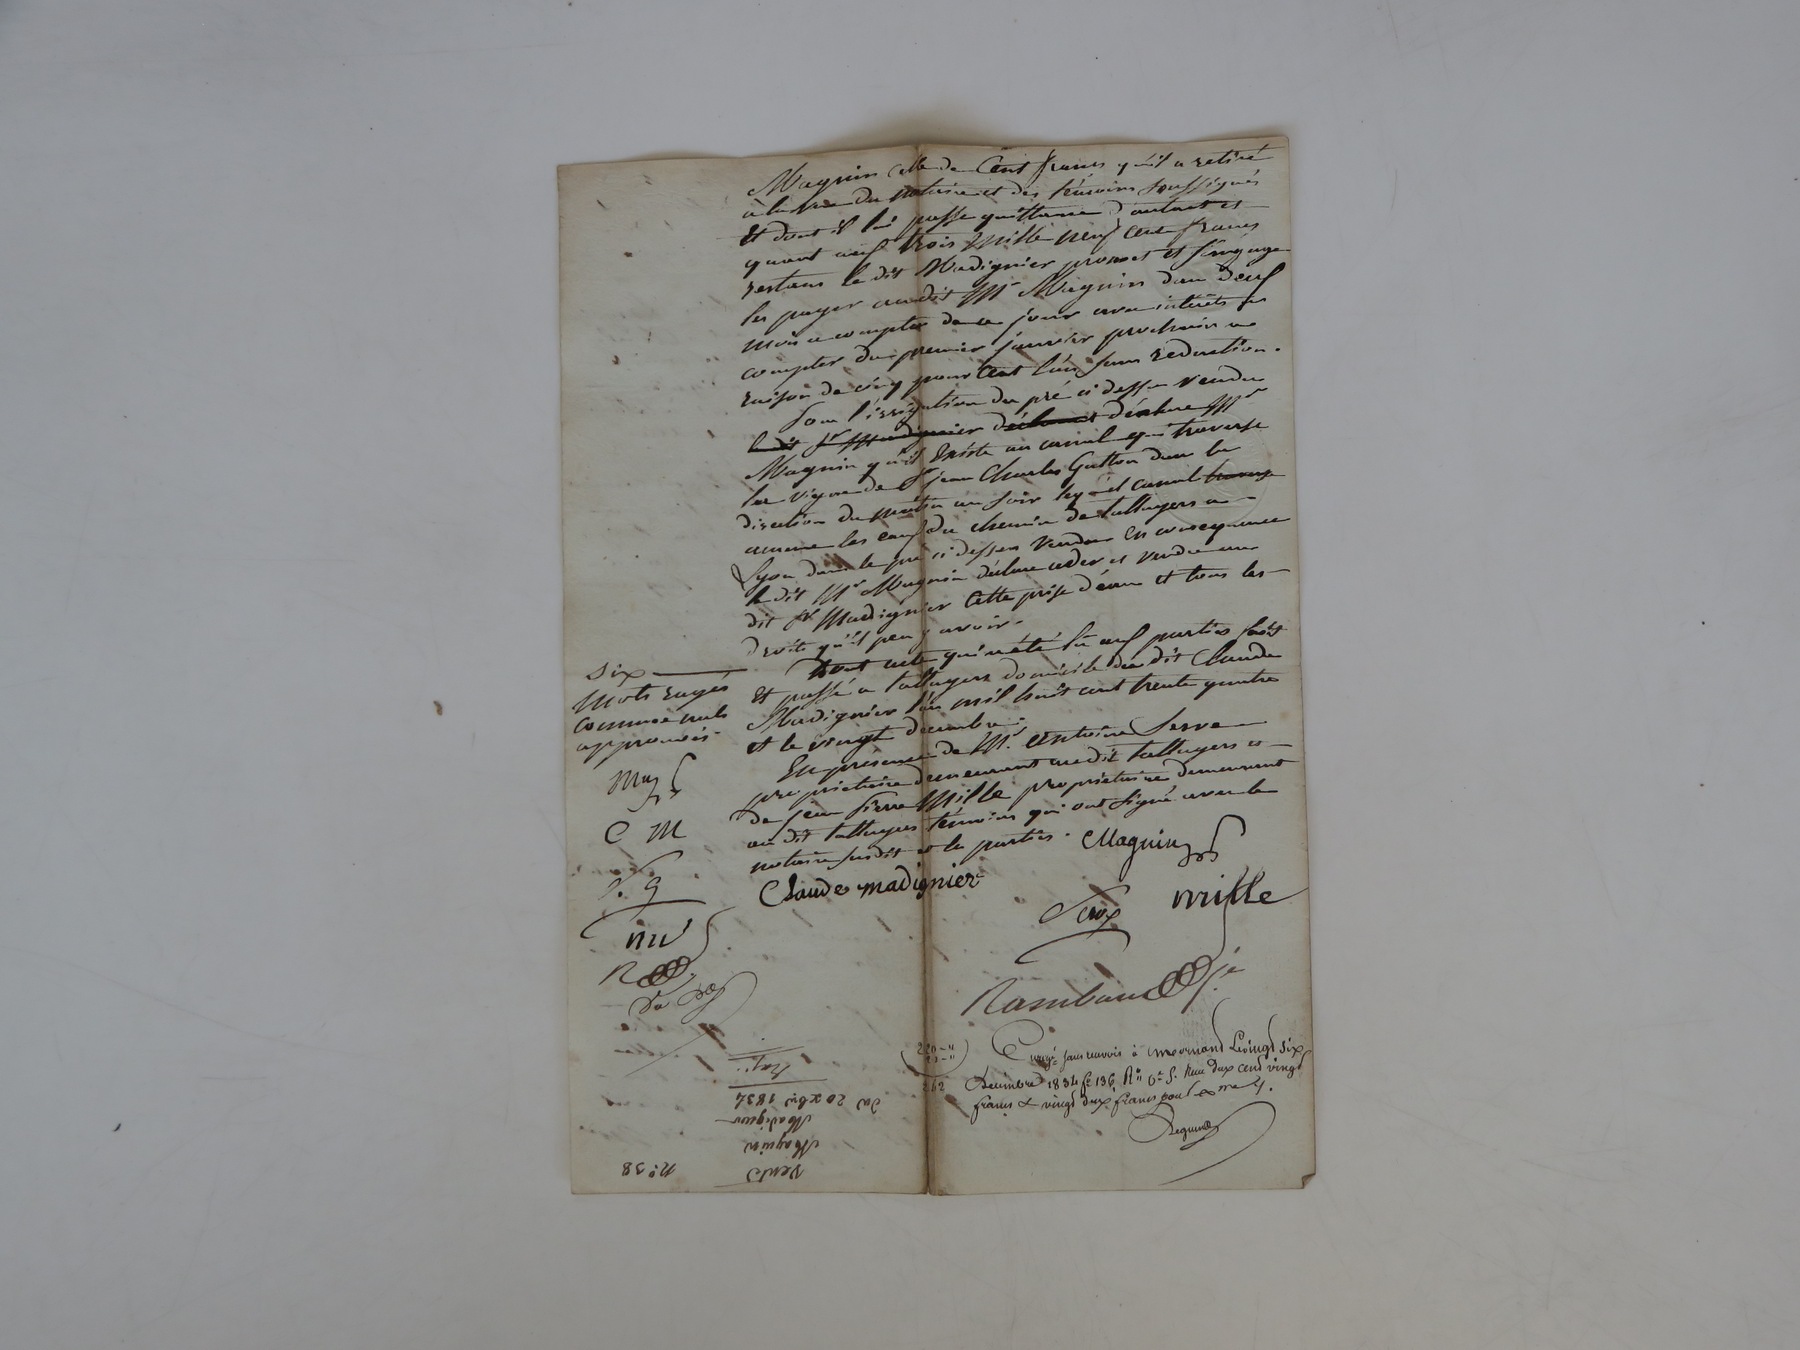 Magnin celle de Cent francs qu'il a retiré
à la vue du notaire et des témoins soussignés
et dont il lui passe quittance d'autant et
quant aux trois mille neuf cent francs
restans le dit Madignier promet et s'engage
les payer audit Mr Magnin dans deux
mois a compter de ce jour avec intérêts a
compter du premier janvier prochain a
raison de cinq pour Cent l'an sans réduction.
Pour l'irrigation du pré ci dessus vendu
le dit Sr Madignier déclarant déclare Mr
Magnin qu'il Existe un canal qui traverse
les vignes de Sr jean Charles Gutton dans la
direction du matin au soir lequel canal
amene les eaux du chemin de talluyers a
Lyon dans le pré ci dessus vendu En conséquence
le dit Mr Magnin déclare ceder et vendre au
dit Sr Madignier Cette prise d'eau et tous les
droits qu'il peu y avoir.
Dont acte qui a été lu aux parties fait
et passé a talluyers domicile du dit Claude
Madignier l'an mil huit cent trente quatre
et le vingt decembre.
En présence de Mr. Antoine Serve
propriétaire demeurant audit talluyers et
de jean Pierre Mille propriétaire demeurant
au dit talluyers témoins qui ont signé avec le
notaire susdit et les parties.
Magnin
Claude madignier
mille
six
mots rayés
comme nuls
approuvés.
Mag
C M
Enregé sans renvois à mornand Levingt six
Decembre 1834 fo 136 Ro Reçu deux cent vingt
francs & vingt deux francs pour
220 "
22 "
242
No 58
Vente
Magnin
Madignier
du 20 xbre 1834